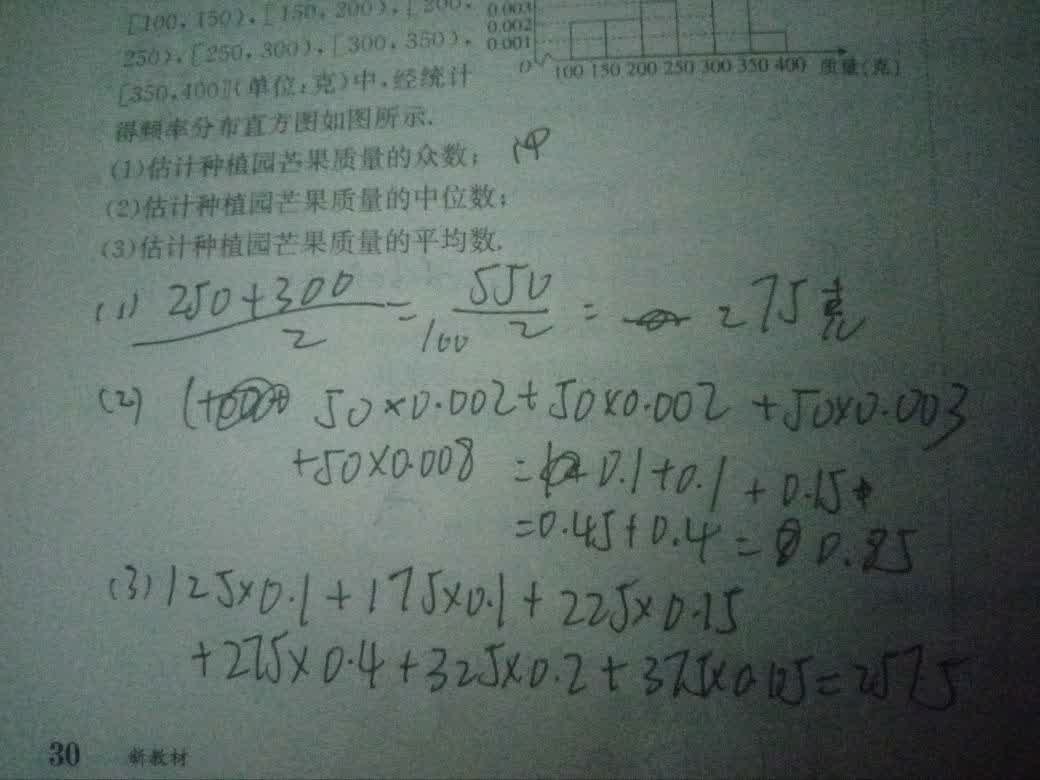 [100,150),[150,200),[200,
250),[250,300),[300,350),
[350,400](单位:克)中,经统计
得频率分布直方图如图所示.
0.003
0.002
0.001
O 100 150 200 250 300 350 400 质量(克)
(1)估计种植园芒果质量的众数;
(2)估计种植园芒果质量的中位数;
(3)估计种植园芒果质量的平均数.
(1) 250+300/2 = 550/2 = 275克
100
(2) 50×0.002+50×0.002+50×0.003
+50×0.008 = 0.1+0.1+0.15+
=0.45+0.4=0.85
(3)125×0.1+175×0.1+225×0.15
+275×0.4+325×0.2+375×0.05=257.5
30 新教材